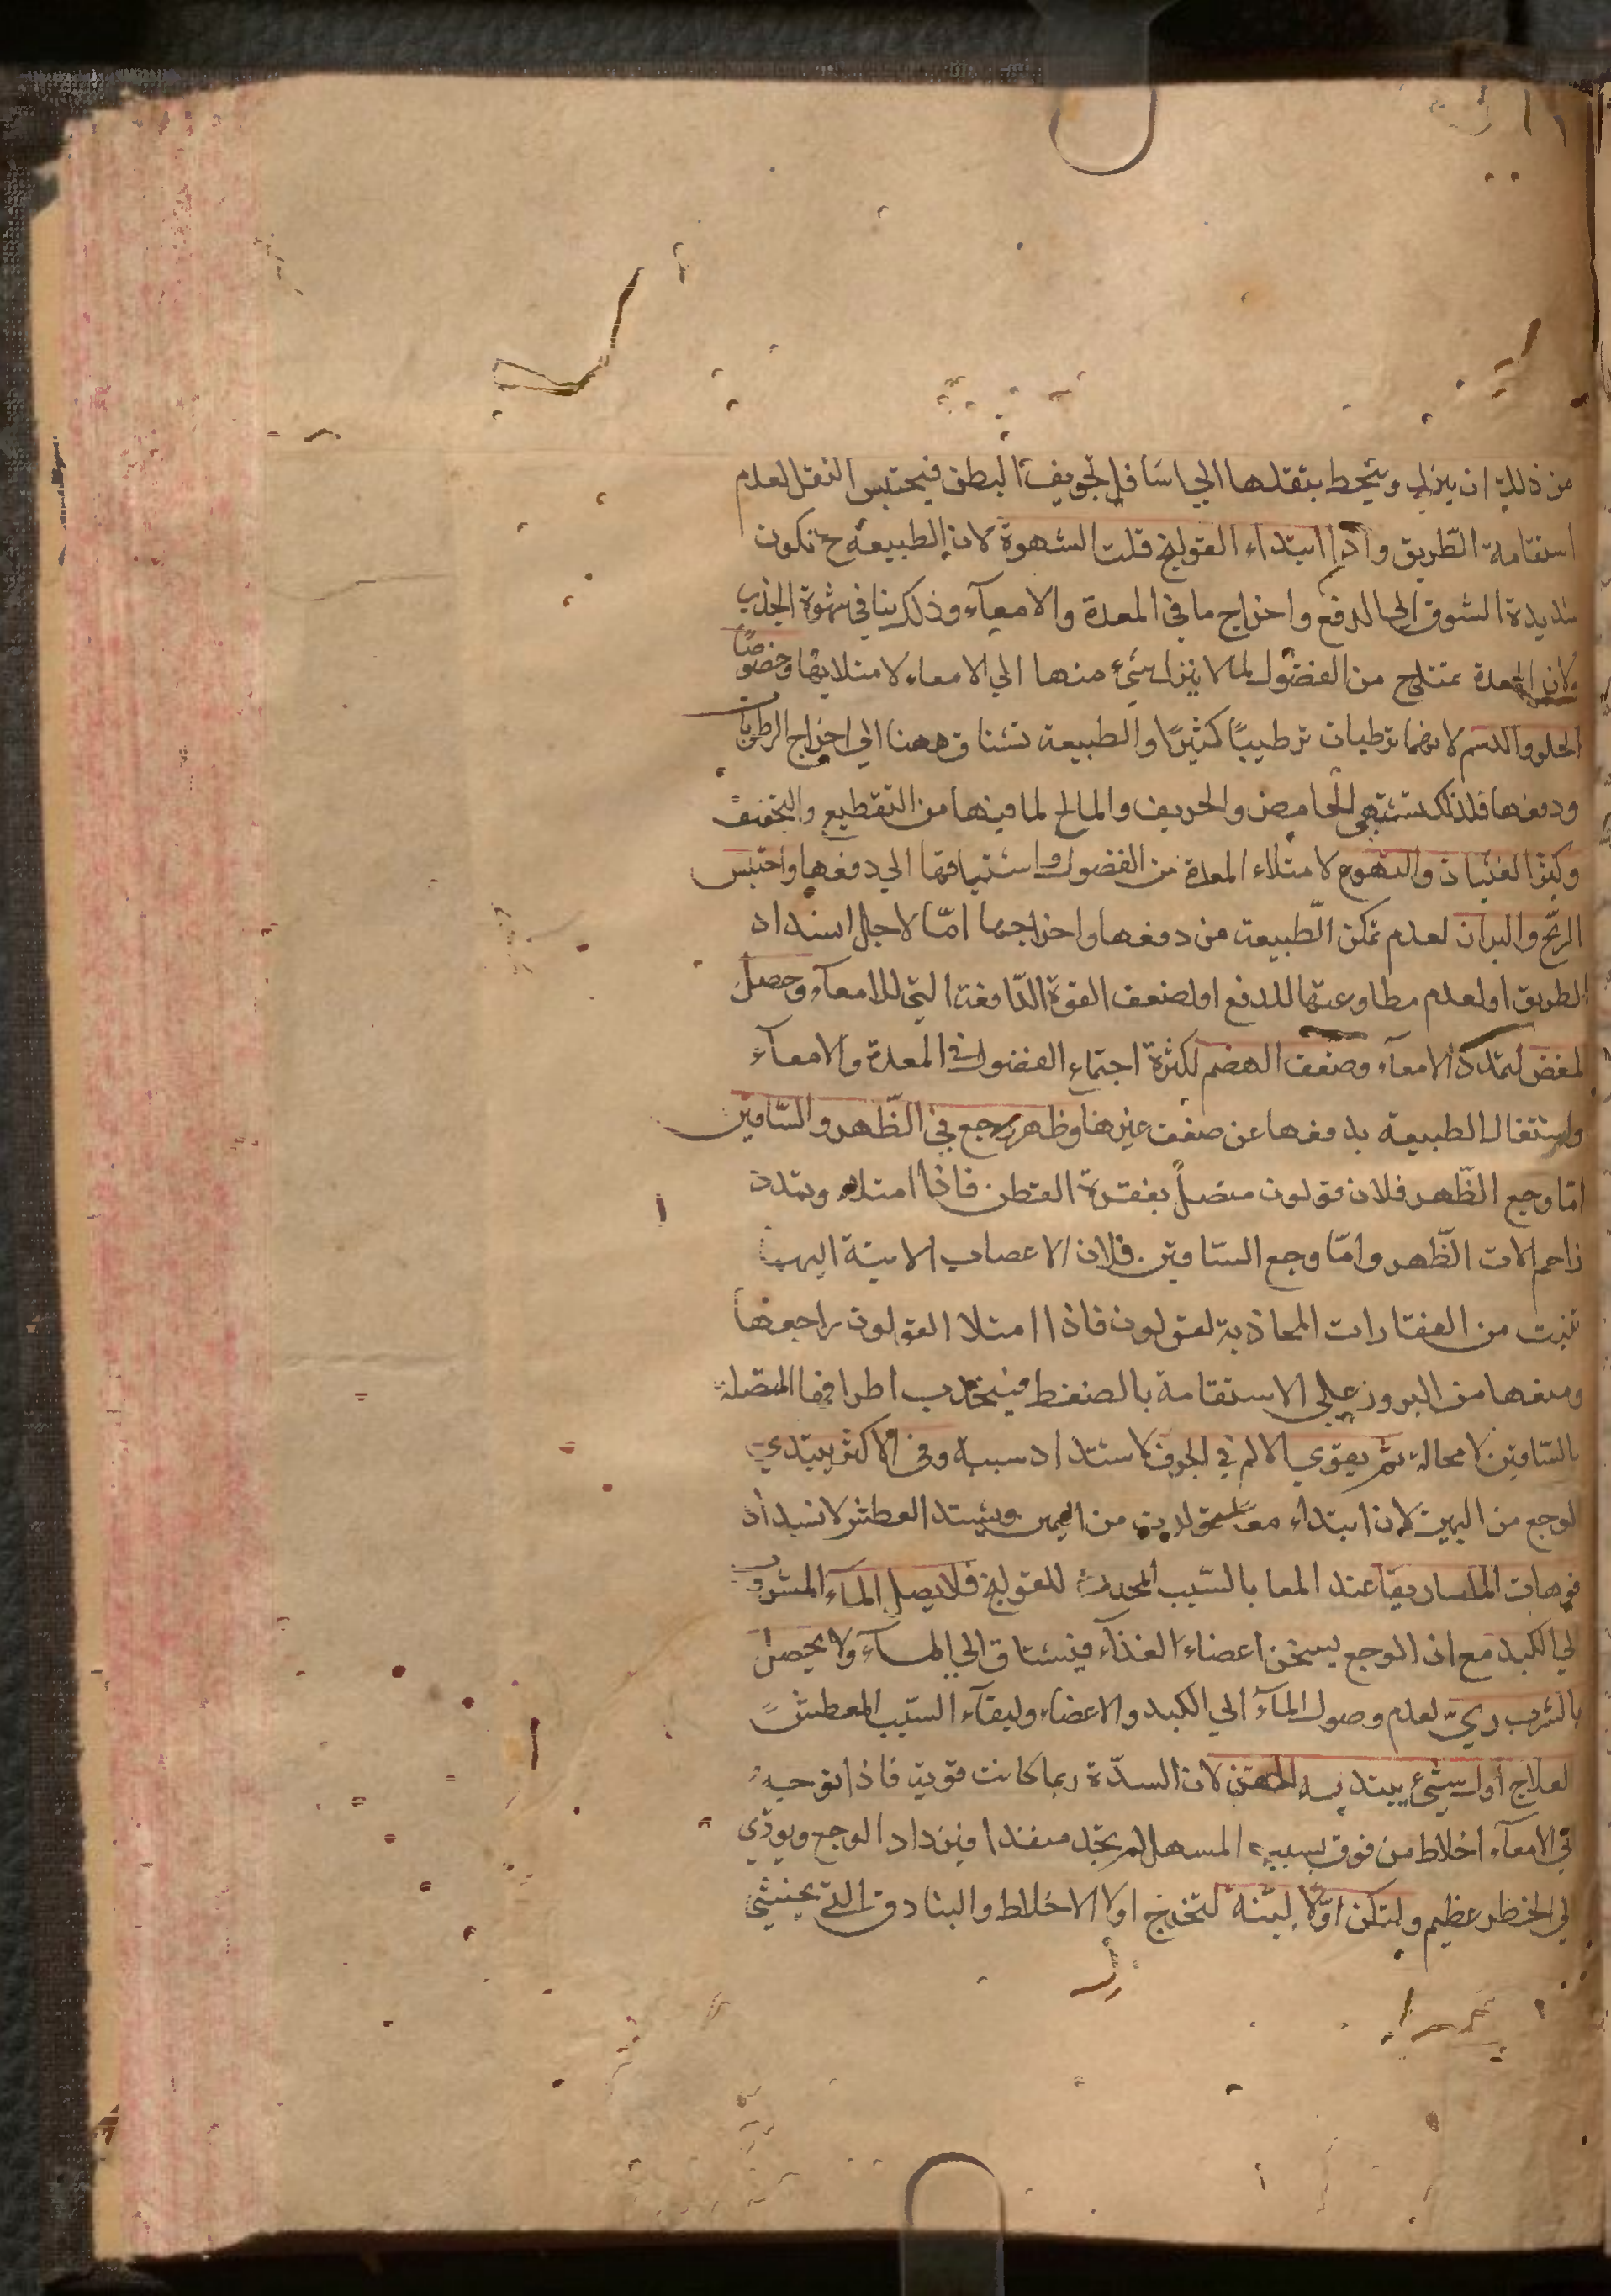 من ذلك ان ينزل وينحط بثقلها الي اسافل تجويف البطن فيحتبس الثقل لعدم
استقامة الطّريق واذا ابتداء القولنج قلت الشهوة لان الطبيعة ح تكون
شديدة الشوق الي الدفع واخراج ما في المعدة والامعآء وذلك ينافي شهوة الجذب
ولان المعدة تمتلي من الفضول لما لا ينزل شيء منها الي الامعاء لامتلايها وخصوصًا
الحلو والدسم لانهما يرطبان ترطيبًا كثيرًا والطبيعة تشتاق ههنا الي اخراج الرطوبات
ودفعها فلذلك تشتهي الحامض والحريف والمالح لما فيها من التقطيع والتجفيف
وكثر الغثيان والتهوع لامتلاء المعدة من الفضول واشتياقها الي دفعها واحتبس
الريح والبراز لعدم تمكن الطّبيعة من دفعها واخراجها امّا لاجل انسداد
الطريق او لعدم مطاوعتها للدفع او لضعف القوة الدّافعة التي للامعآء وحصل
المغص لتمدد الامعآء وضعف الهضم لكثرة اجتماع الفضول في المعدة والامعآء
واشتغال الطبيعة بدفعها عن ضعف غيرها وظهر وجع في الظّهر والسّاقين
امّا وجع الظّهر فلان قولون متصل بفقرة القطن فاذا امتلاء وتمدد
زاحم الات الظّهر وامّا وجع السّاقين فلان الاعصاب الاتية اليهما
تنبت من الفقارات المحاذية لقولون فاذا امتلا القولون زاحمها
ومنعها من البروز علي الاستقامة بالضغط فينجذب اطرافها المتصلة
بالسّاقين لا محالة ثم يقوي الالم في الجوف لاشتداد سببه وفي الاكثر يبتدي
الوجع من اليمين لان ابتداء معا قولون من اليمين ويشتد العطش لانسداد
فوهات الماساريقا عند المعا بالسّبب المحدث للقولنج فلا يصل المآء المشروب
الي الكبد مع ان الوجع يسخن اعضاء الغذآء فيشتاق الي المآء ولا يحصل
بالشرب ريّ لعدم وصول المآء الي الكبد والاعضاء ولبقآء السّبب المعطش
العلاج اول شيء يبتدي به الحقن لان السدّة ربما كانت قوية فاذا توجه
الي الامعآء اخلاط من فوق بسبب المسهل لم تجد منفذا فيزداد الوجع ويودي
الي الخطر عظيم ولتكن اوّلا ليّنة لتخرج اولا الاخلاط والبنادق التي